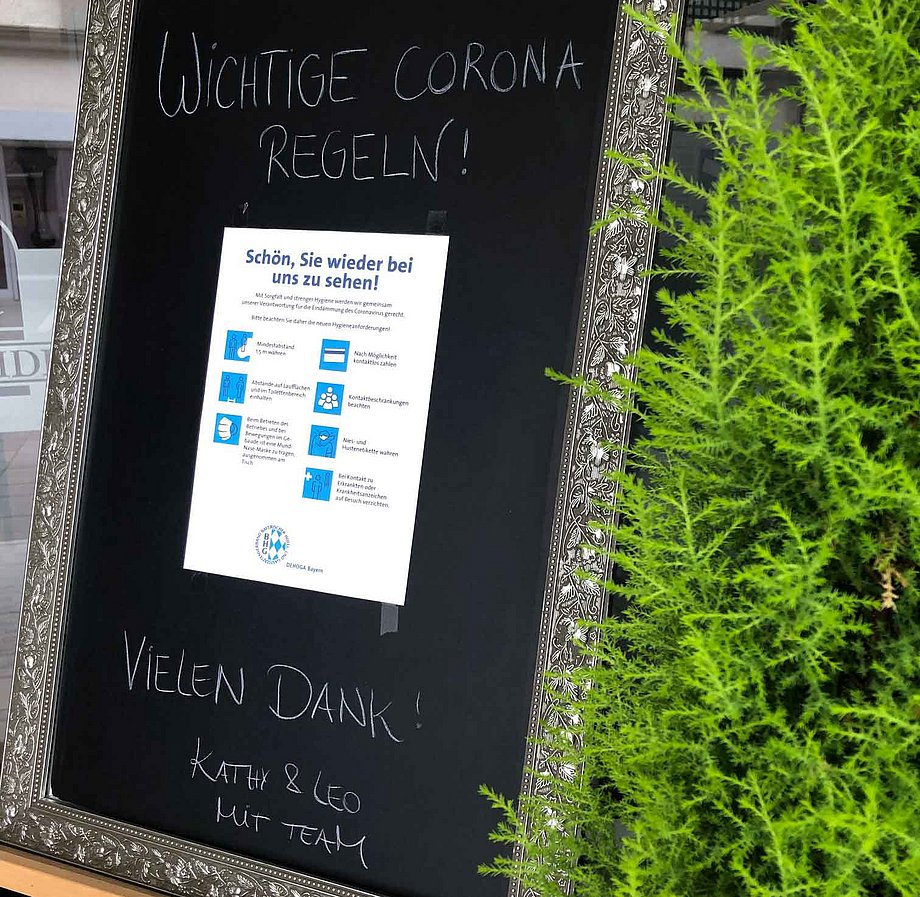 WICHTIGE CORONA
REGELN!
Schön, Sie wieder bei
uns zu sehen!
Mit Sorgfalt und strenger Hygiene werden wir gemeinsam
unserer Verantwortung für die Eindämmung des Coronavirus gerecht.
Bitte beachten Sie daher die neuen Hygieneanforderungen!
Mindestabstand
1,5 m wahren
Abstände auf Laufflächen
und im Toilettenbereich
einhalten
Beim Betreten des
Betriebes und bei
Bewegungen im Ge-
bäude ist eine Mund-
Nase-Maske zu tragen,
ausgenommen am
Tisch
Nach Möglichkeit
kontaktlos zahlen
Kontaktbeschränkungen
beachten
Nies- und
Hustenetikette wahren
Bei Kontakt zu
Erkrankten oder
Krankheitsanzeichen
auf Besuch verzichten.
BHG
DEHOGA Bayern
VIELEN DANK!
KATHY & LEO
MIT TEAM